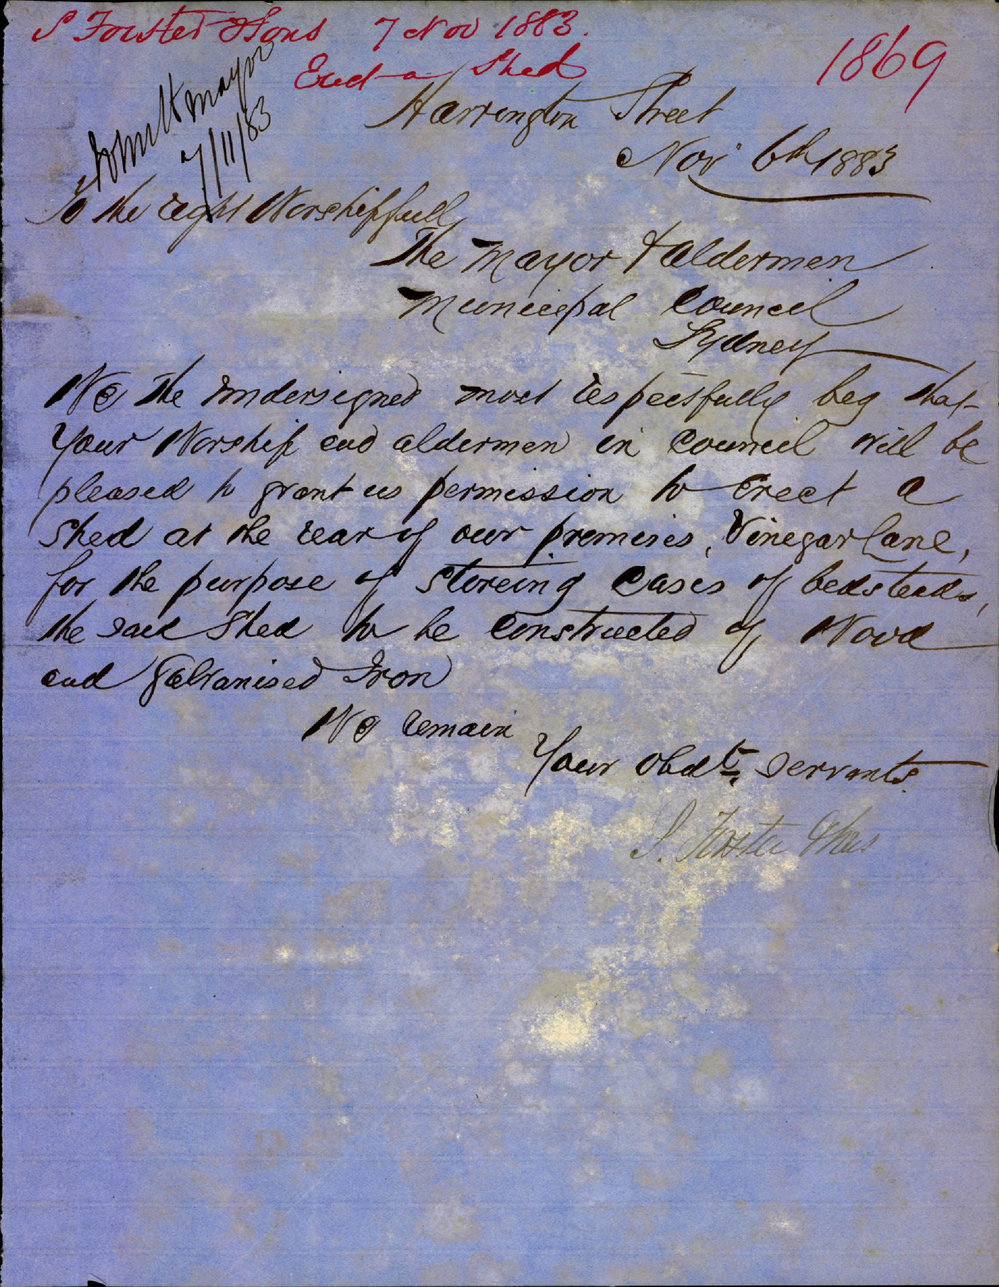 S Forster & Sons 7 Nov 1883.
Erect a Shed
1869
John H mayor
7/11/83
Harrington Street
Nov 6th 1883
To the right Worshipfull
The Mayor & aldermen
Municipal Council
Sydney
We the undersigned most respectfully beg that
Your Worship and aldermen in Council will be
pleased to grant us permission to erect a
Shed at the rear of our premises, Vinegar Lane,
for the purpose of Storeing Cases of bedsteads,
the said Shed to be Constructed of Wood
and Galvanised Iron
We remain
Your obdt servants
S. Forster & Sons